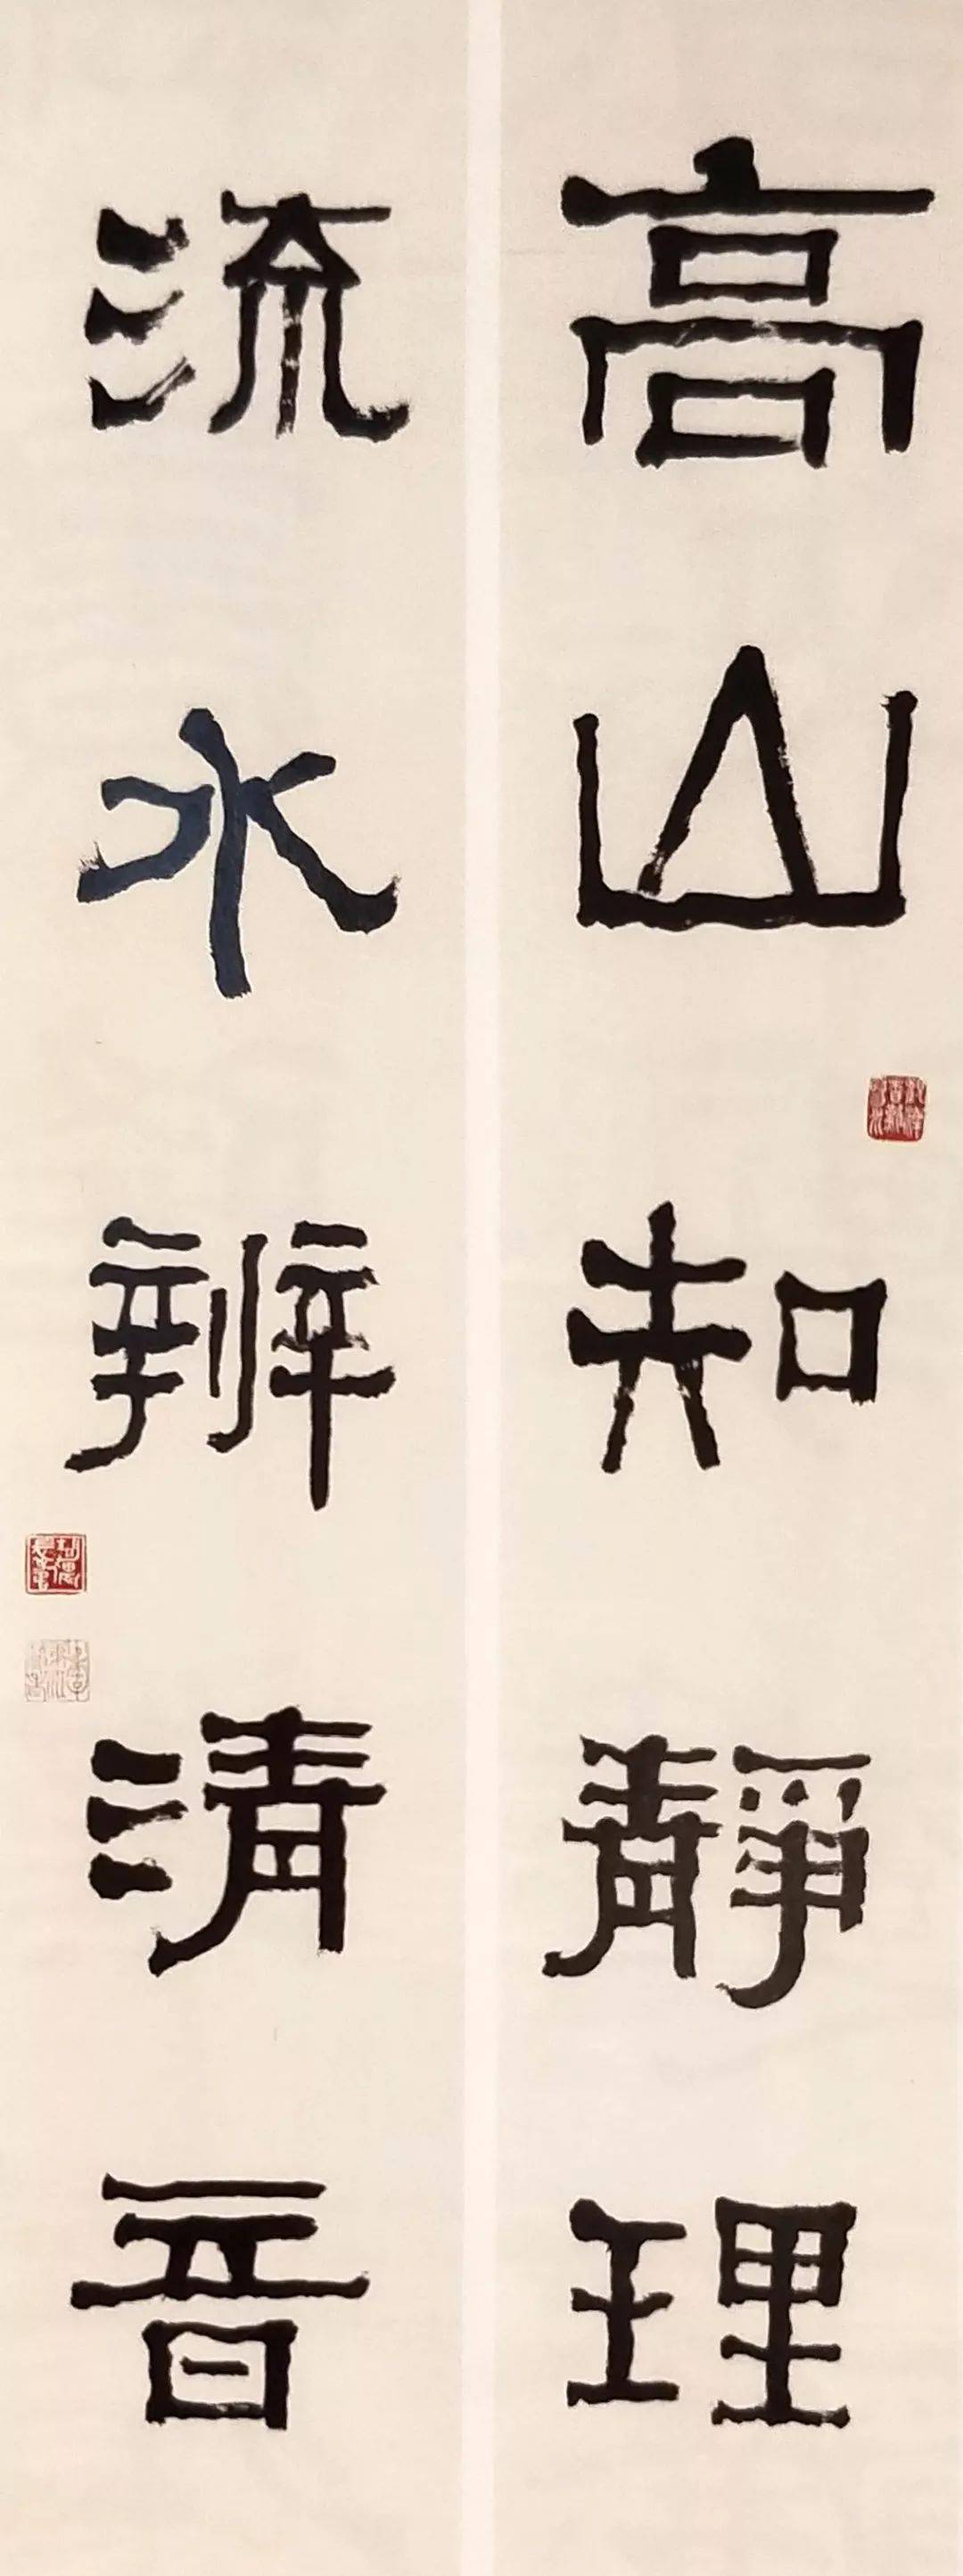 高山知靜理
流水辨清音